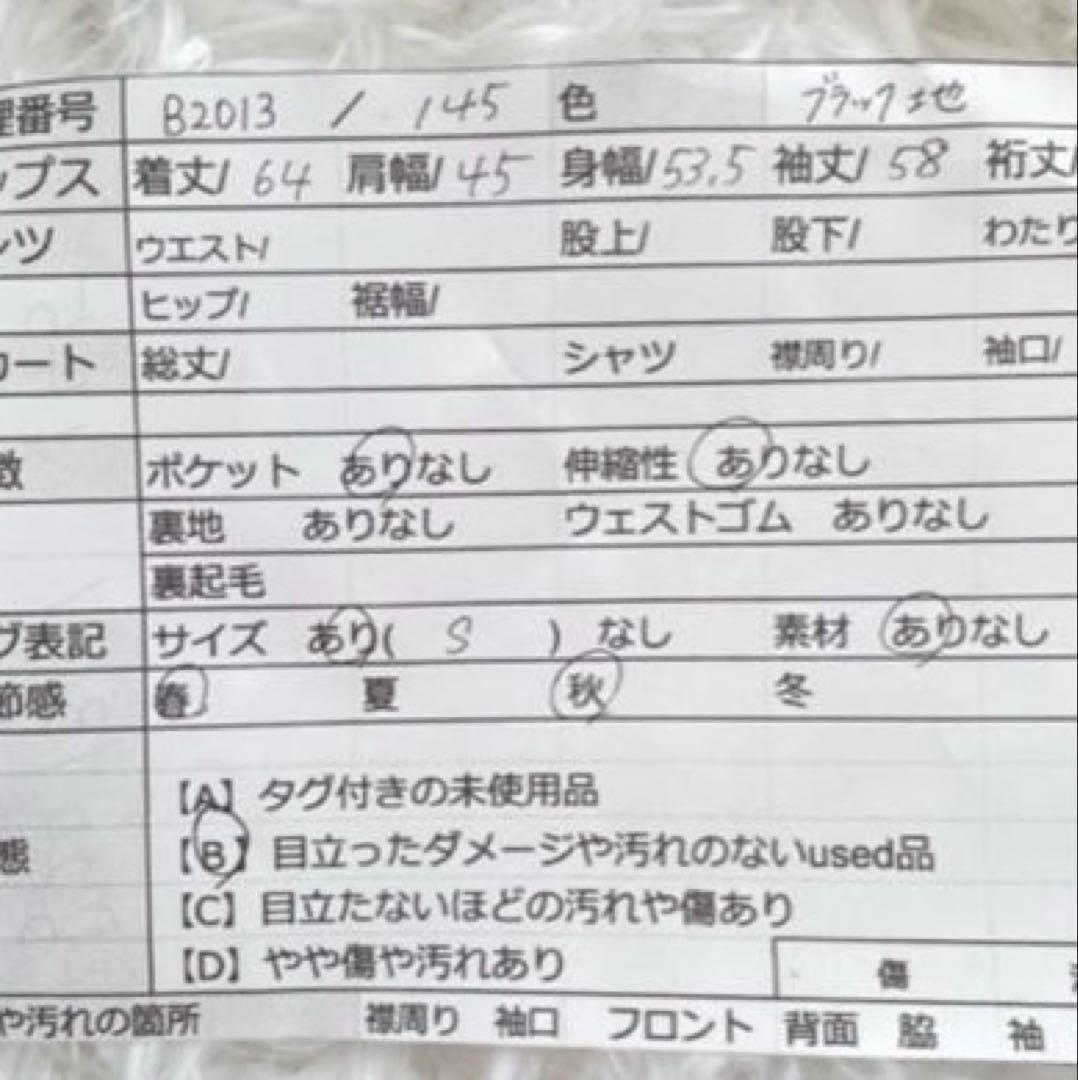 理番号 B2013 / 145 色 ブラック地
ップス 着丈/ 64 肩幅/ 45 身幅/ 53.5 袖丈/ 58 裄丈/
ンツ ウエスト/ 股上/ 股下/ わたり
ヒップ/ 裾幅/
カート 総丈/ シャツ 襟周り/ 袖口/
徴 ポケット ありなし 伸縮性 ありなし
裏地 ありなし ウェストゴム ありなし
裏起毛
グ表記 サイズ あり( S ) なし 素材 ありなし
節感 春 夏 秋 冬
【A】タグ付きの未使用品
態 【B】目立ったダメージや汚れのないused品
【C】目立たないほどの汚れや傷あり
【D】やや傷や汚れあり 傷
や汚れの箇所 襟周り 袖口 フロント 背面 脇 袖